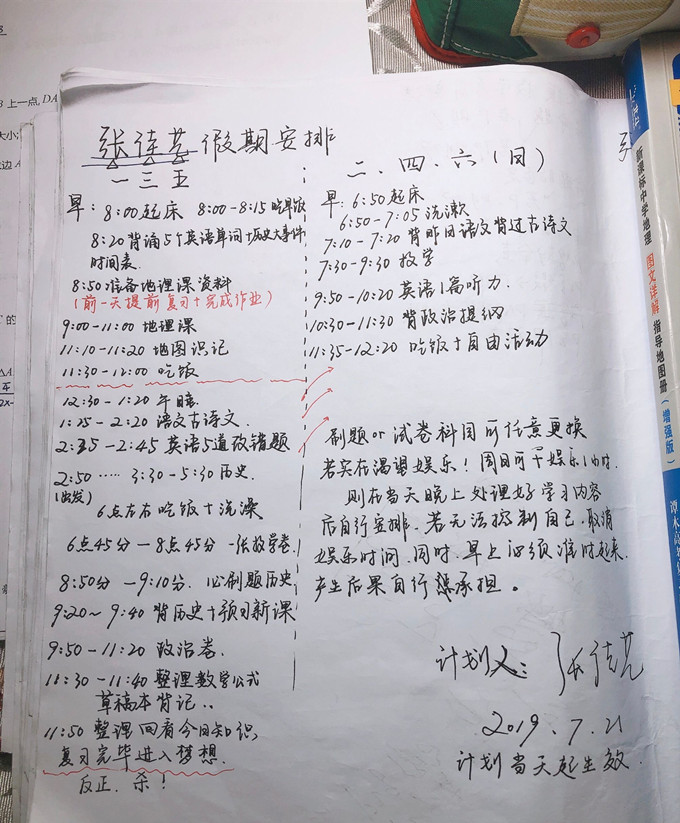 上一点,
大小
假期安排
一 三 五
早: 8:00起床 8:00-8:15吃早饭
8:20背诵5个英语单词+历史大事件
时间表.
8:50准备地理课资料
(前一天提前复习+完成作业)
9:00-11:00 地理课
11:10-11:20 地图识记
11:30-12:00 吃饭
12:30-1:20 午睡
1:25-2:20 语文古诗文
2:35-2:45 英语5道改错题
2:50 …… 3:30-5:30历史.
(出发)
6点左右吃饭+洗澡
6点45分-8点45分 一张数学卷
8:50分-9:10分. 必刷题历史
9:20~9:40 背历史+预习新课
9:50-11:20 政治卷.
11:30-11:40 整理数学公式
草稿本背记..
11:50 整理回看今日知识,
复习完毕进入梦想.
反正.杀!
二、四、六(日)
早: 6:50起床
6:50-7:05洗漱
7:10-7:20背昨日语文背过古诗文
7:30-9:30 数学
9:50-10:20英语1篇听力.
10:30-11:30 背政治提纲
11:35-12:20 吃饭+自由活动
刷题or试卷科目可任意更换
若实在渴望娱乐!周日可干娱乐1小时.
则在当天晚上处理好学习内容
后自行安排.若无法控制自己.取消
娱乐时间.同时.早上必须准时起来.
产生后果自行承担。
计划人:
2019.7.21
计划当天起生效.
新课标中学地理 图文详解 指导地图册(增强版)